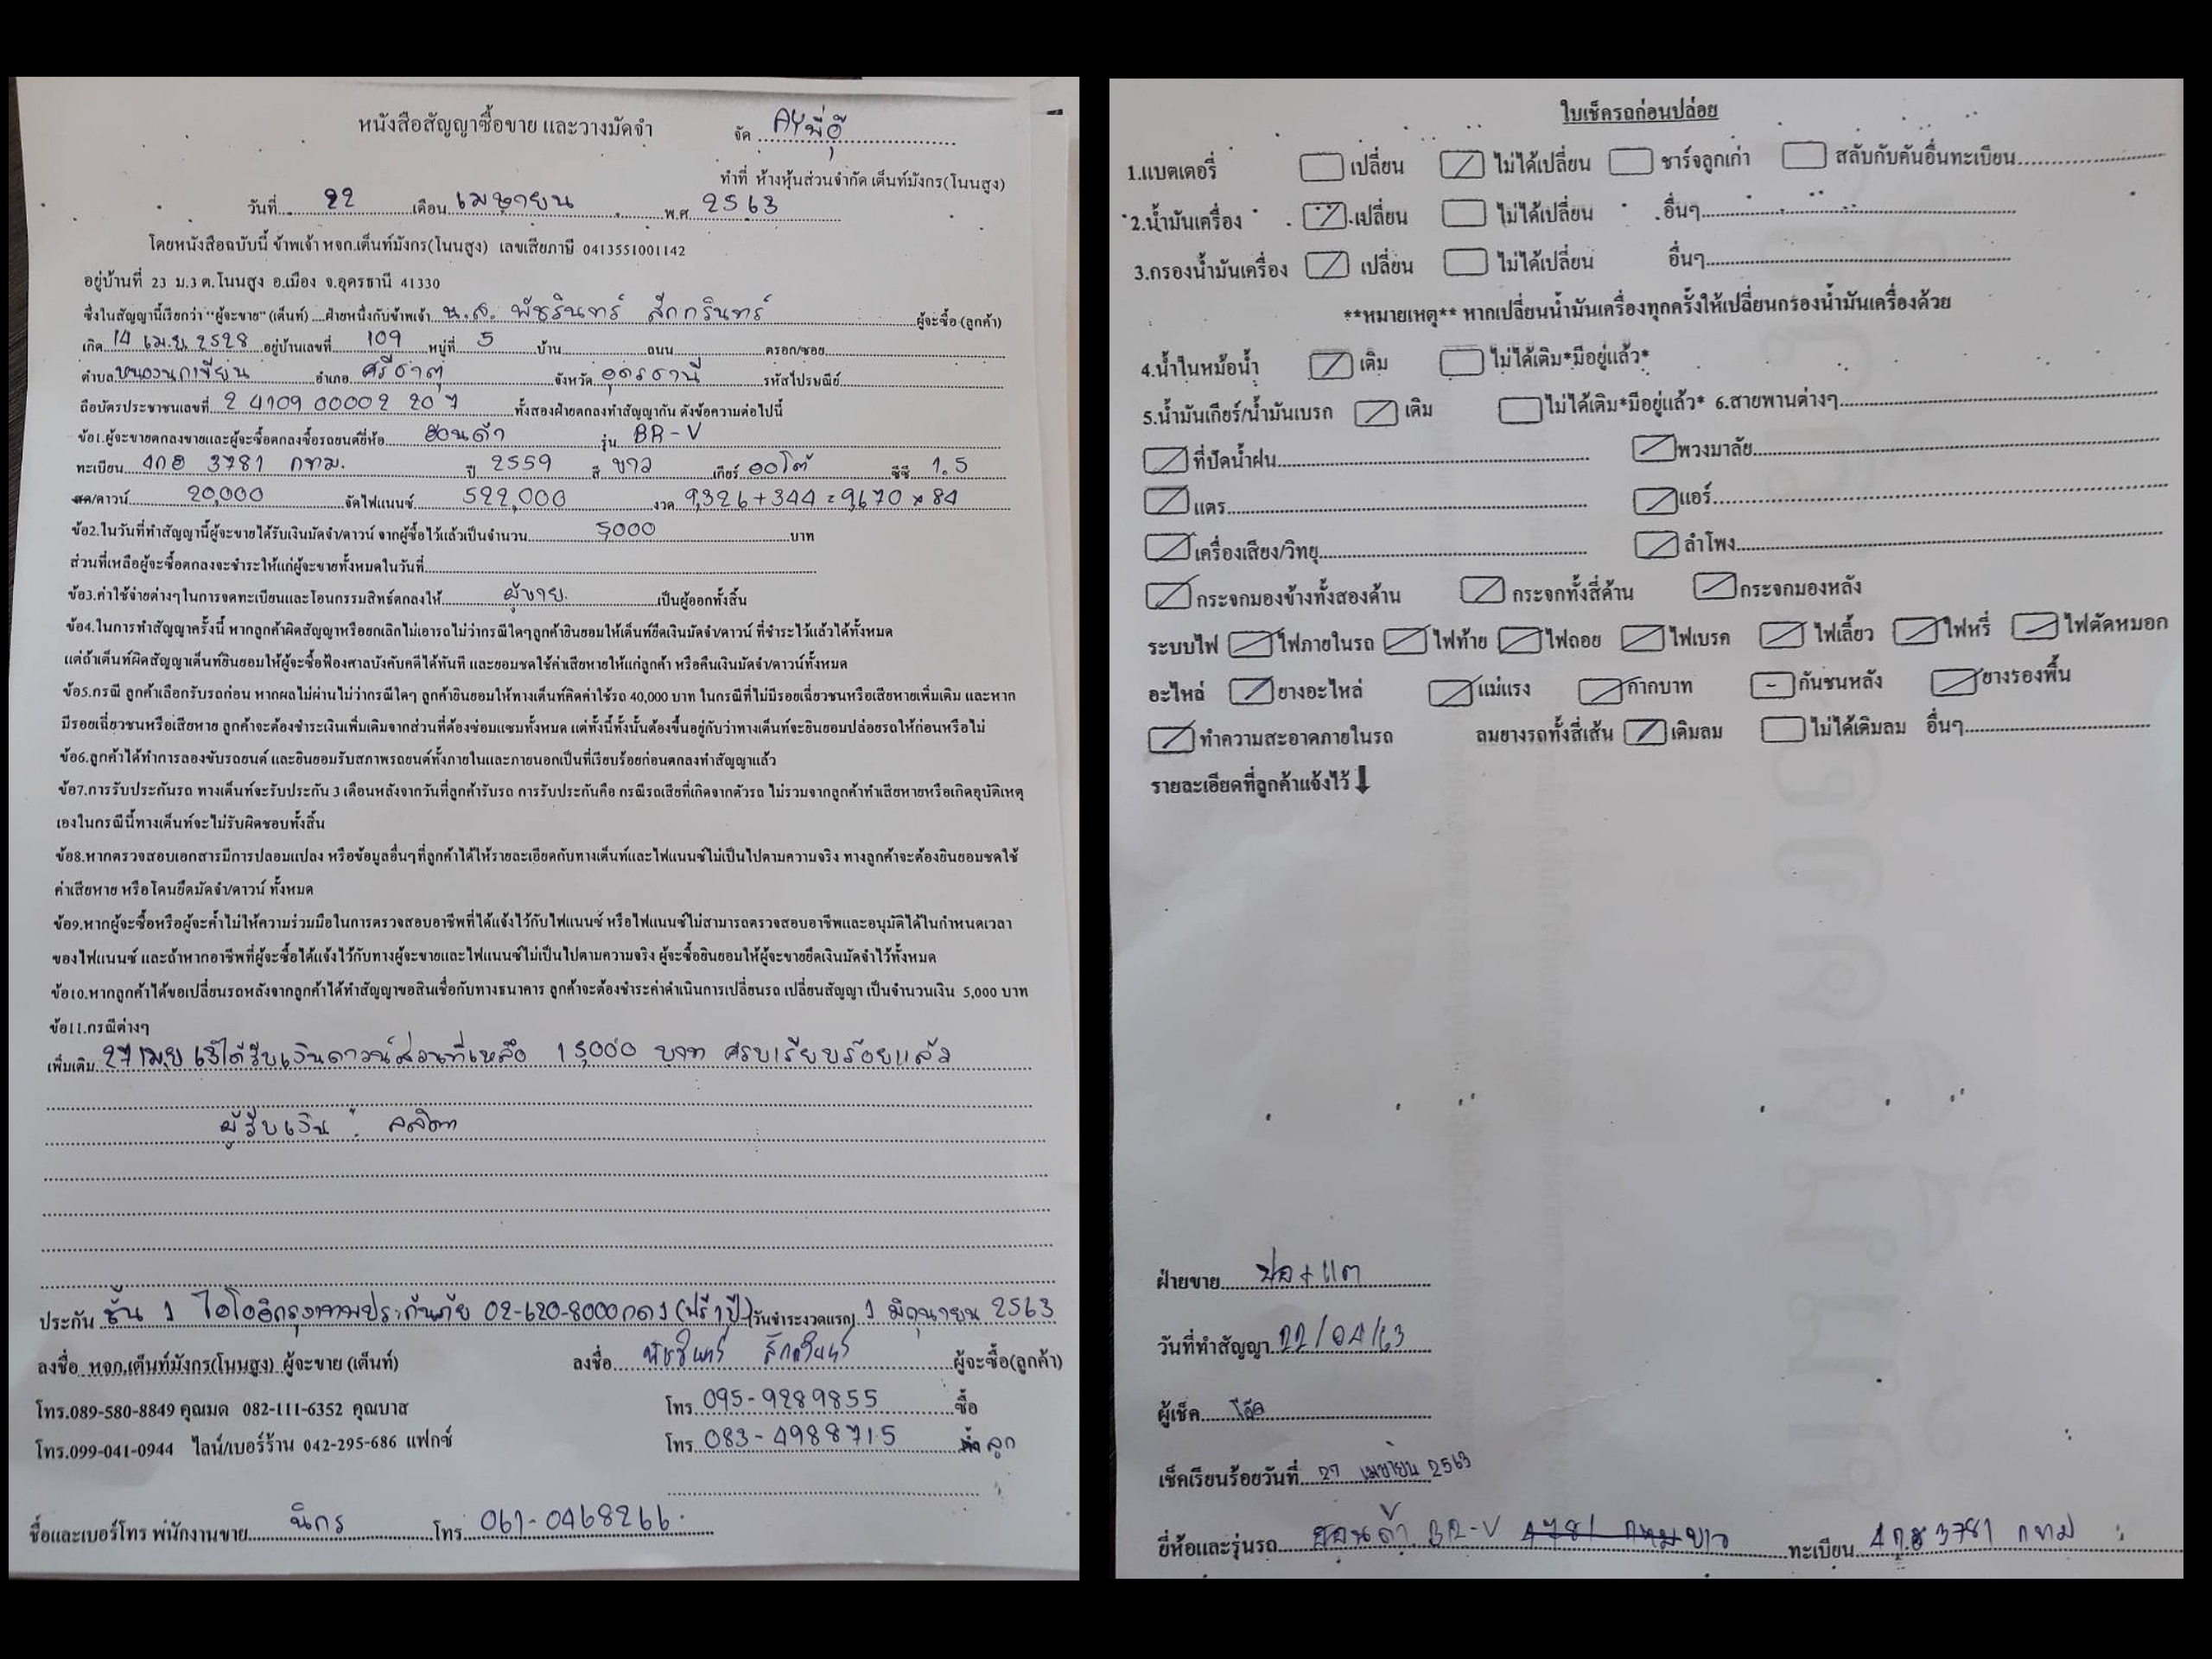 หนังสือสัญญาซื้อขาย และวางมัดจำ
จัด AYพี่อู๊
ทำที่ ห้างหุ้นส่วนจำกัด เต็นท์มังกร(โนนสูง)
วันที่ 22 เดือน เมษายน พ.ศ 2563
โดยหนังสือฉบับนี้ ข้าพเจ้า หจก.เต็นท์มังกร(โนนสูง) เลขเสียภาษี 0413551001142
อยู่บ้านที่ 23 ม.3 ต.โนนสูง อ.เมือง จ.อุดรธานี 41330
ซึ่งในสัญญานี้เรียกว่า "ผู้จะขาย" (เต็นท์) ....ฝ่ายหนึ่งกับข้าพเจ้า น.ส. พัชรินทร์ สักกรินทร์ ผู้จะซื้อ (ลูกค้า)
เกิด 14 เม.ย. 2528 อยู่บ้านเลขที่ 109 หมู่ที่ 5 บ้าน ถนน ตรอก/ซอย
ตำบล หนองนกเขียน อำเภอ ศรีธาตุ จังหวัด อุดรธานี รหัสไปรษณีย์
ถือบัตรประชาชนเลขที่ 2 4109 00002 20 7 ทั้งสองฝ่ายตกลงทำสัญญากัน ดังข้อความต่อไปนี้
ข้อ1.ผู้จะขายตกลงขายและผู้จะซื้อตกลงซื้อรถยนต์ยี่ห้อ ฮอนด้า รุ่น BR-V
ทะเบียน 3781 กทม. ปี 2559 สี ขาว เกียร์ ออโต้ ซีซี 1.5
สด/ดาวน์ 20,000 จัดไฟแนนซ์ 522,000 งวด 9,326+344 = 9,670 × 84
ข้อ2.ในวันที่ทำสัญญานี้ผู้จะขายได้รับเงินมัดจำ/ดาวน์ จากผู้ซื้อไว้แล้วเป็นจำนวน 5000 บาท
ส่วนที่เหลือผู้จะซื้อตกลงจะชำระให้แก่ผู้จะขายทั้งหมดในวันที่
ข้อ3.ค่าใช้จ่ายต่างๆในการจดทะเบียนและโอนกรรมสิทธ์ตกลงให้ ผู้ขาย. เป็นผู้ออกทั้งสิ้น
ข้อ4.ในการทำสัญญาครั้งนี้ หากลูกค้าผิดสัญญาหรือยกเลิกไม่เอารถไม่ว่ากรณีใดๆลูกค้ายินยอมให้เต็นท์ยึดเงินมัดจำ/ดาวน์ ที่ชำระไว้แล้วได้ทั้งหมด
แต่ถ้าเต็นท์ผิดสัญญาเต็นท์ยินยอมให้ผู้จะซื้อฟ้องศาลบังคับคดีได้ทันที และยอมชดใช้ค่าเสียหายให้แก่ลูกค้า หรือคืนเงินมัดจำ/ดาวน์ทั้งหมด
ข้อ5.กรณี ลูกค้าเลือกรับรถก่อน หากผลไม่ผ่านไม่ว่ากรณีใดๆ ลูกค้ายินยอมให้ทางเต็นท์คิดค่าใช้รถ 40,000 บาท ในกรณีที่ไม่มีรอยเฉี่ยวชนหรือเสียหายเพิ่มเติม และหาก
มีรอยเฉี่ยวชนหรือเสียหาย ลูกค้าจะต้องชำระเงินเพิ่มเติมจากส่วนที่ต้องซ่อมแซมทั้งหมด แต่ทั้งนี้ทั้งนั้นต้องขึ้นอยู่กับว่าทางเต็นท์จะยินยอมปล่อยรถให้ก่อนหรือไม่
ข้อ6.ลูกค้าได้ทำการลองขับรถยนต์ และยินยอมรับสภาพรถยนต์ทั้งภายในและภายนอกเป็นที่เรียบร้อยก่อนตกลงทำสัญญาแล้ว
ข้อ7.การรับประกันรถ ทางเต็นท์จะรับประกัน 3 เดือนหลังจากวันที่ลูกค้ารับรถ การรับประกันคือ กรณีรถเสียที่เกิดจากตัวรถ ไม่รวมจากลูกค้าทำเสียหายหรือเกิดอุบัติเหตุ
เองในกรณีนี้ทางเต็นท์จะไม่รับผิดชอบทั้งสิ้น
ข้อ8.หากตรวจสอบเอกสารมีการปลอมแปลง หรือข้อมูลอื่นๆที่ลูกค้าได้ให้รายละเอียดกับทางเต็นท์และไฟแนนซ์ไม่เป็นไปตามความจริง ทางลูกค้าจะต้องยินยอมชดใช้
ค่าเสียหาย หรือ โดนยึดมัดจำ/ดาวน์ ทั้งหมด
ข้อ9.หากผู้จะซื้อหรือผู้จะค้ำไม่ให้ความร่วมมือในการตรวจสอบอาชีพที่ได้แจ้งไว้กับไฟแนนซ์ หรือไฟแนนซ์ไม่สามารถตรวจสอบอาชีพและอนุมัติได้ในกำหนดเวลา
ของไฟแนนซ์ และถ้าหากอาชีพที่ผู้จะซื้อได้แจ้งไว้กับทางผู้จะขายและไฟแนนซ์ไม่เป็นไปตามความจริง ผู้จะซื้อยินยอมให้ผู้จะขายยึดเงินมัดจำไว้ทั้งหมด
ข้อ10.หากลูกค้าได้ขอเปลี่ยนรถหลังจากลูกค้าได้ทำสัญญาขอสินเชื่อกับทางธนาคาร ลูกค้าจะต้องชำระค่าดำเนินการเปลี่ยนรถ เปลี่ยนสัญญา เป็นจำนวนเงิน 5,000 บาท
ข้อ11.กรณีต่างๆ
เพิ่มเติม 27 เม.ย 63 ได้รับเงินดาวน์ส่วนที่เหลือ 15,000 บาท ครบเรียบร้อยแล้ว
ผู้รับเงิน : ลลิตา
ประกัน ชั้น 1 ไอโออิกรุงเทพประกันภัย 02-620-8000 กด 1 (ฟรี 1 ปี) (วันชำระงวดแรก) 1 มิถุนายน 2563
ลงชื่อ หจก.เต็นท์มังกร(โนนสูง) ผู้จะขาย (เต็นท์) ลงชื่อ พัชรินทร์ สักกรินทร์ ผู้จะซื้อ(ลูกค้า)
โทร.089-580-8849 คุณมด 082-111-6352 คุณบาส โทร. 095-9289855 ซื้อ
โทร.099-041-0944 ไลน์/เบอร์ร้าน 042-295-686 แฟกซ์ โทร 083-4988715 ค้ำ ลูก
ชื่อและเบอร์โทร พนักงานขาย นิกร โทร 061-0468266
ใบเช็ครถก่อนปล่อย
1.แบตเตอรี่ เปลี่ยน ไม่ได้เปลี่ยน ชาร์จลูกเก่า สลับกับคันอื่นทะเบียน
2.น้ำมันเครื่อง เปลี่ยน ไม่ได้เปลี่ยน อื่นๆ
3.กรองน้ำมันเครื่อง เปลี่ยน ไม่ได้เปลี่ยน อื่นๆ
**หมายเหตุ** หากเปลี่ยนน้ำมันเครื่องทุกครั้งให้เปลี่ยนกรองน้ำมันเครื่องด้วย
4.น้ำในหม้อน้ำ เติม ไม่ได้เติม*มีอยู่แล้ว*
5.น้ำมันเกียร์/น้ำมันเบรก เติม ไม่ได้เติม*มีอยู่แล้ว* 6.สายพานต่างๆ
ที่ปัดน้ำฝน พวงมาลัย
แตร แอร์
เครื่องเสียง/วิทยุ ลำโพง
กระจกมองข้างทั้งสองด้าน กระจกทั้งสี่ด้าน กระจกมองหลัง
ระบบไฟ ไฟภายในรถ ไฟท้าย ไฟถอย ไฟเบรค ไฟเลี้ยว ไฟหรี่ ไฟตัดหมอก
อะไหล่ ยางอะไหล่ แม่แรง กากบาท กันชนหลัง ยางรองพื้น
ทำความสะอาดภายในรถ ลมยางรถทั้งสี่เส้น เติมลม ไม่ได้เติมลม อื่นๆ
รายละเอียดที่ลูกค้าแจ้งไว้
ฝ่ายขาย ปอ+แต
วันที่ทำสัญญา 22/04/63
ผู้เช็ค
เช็คเรียบร้อยวันที่ 27 เมษายน 2563
ยี่ห้อและรุ่นรถ ฮอนด้า BR-V ขาว ทะเบียน 3781 กทม